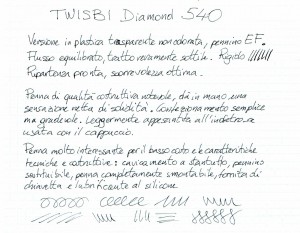 TWISBI Diamond 540
Versione in plastica trasparente non odorata, pennino EF.
Flusso equilibrato, tratto veramente sottile. Rigido
Ripartenza pronta, scorrevolezza ottima.
Penna di qualità costruttiva notevole, dà in mano una
sensazione netta di solidità. Confezionamento semplice
ma gradevole. Leggermente appesantita all'indietro se
usata con il cappuccio.
Penna molto interessante per il basso costo e le caratteristiche
tecniche e costruttive: caricamento a stantuffo, pennino
sostituibile, penna completamente smontabile, fornita di
chiavetta e lubrificante al silicone.